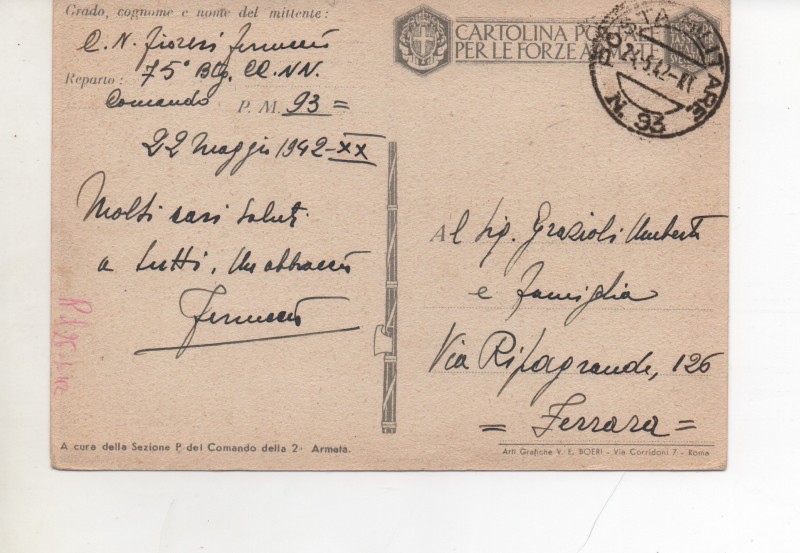 Grado, cognome e nome del mittente:
C. N. Fioresi Ferruccio
Reparto: 75° Btg. CC. NN.
Comando P. M. 93 =
22 Maggio 1942-XX
Molti cari saluti
a tutti. Un abbraccio
Ferruccio
R 26-5-42
A cura della Sezione P del Comando della 2ª Armata.
CARTOLINA POSTALE
PER LE FORZE ARMATE
POSTA MILITARE
N. 93
Al Sig. Grazioli Umberto
e famiglia
Via Ripagrande, 126
= Ferrara =
Arti Grafiche V. E. BOERI - Via Corridoni 7 - Roma